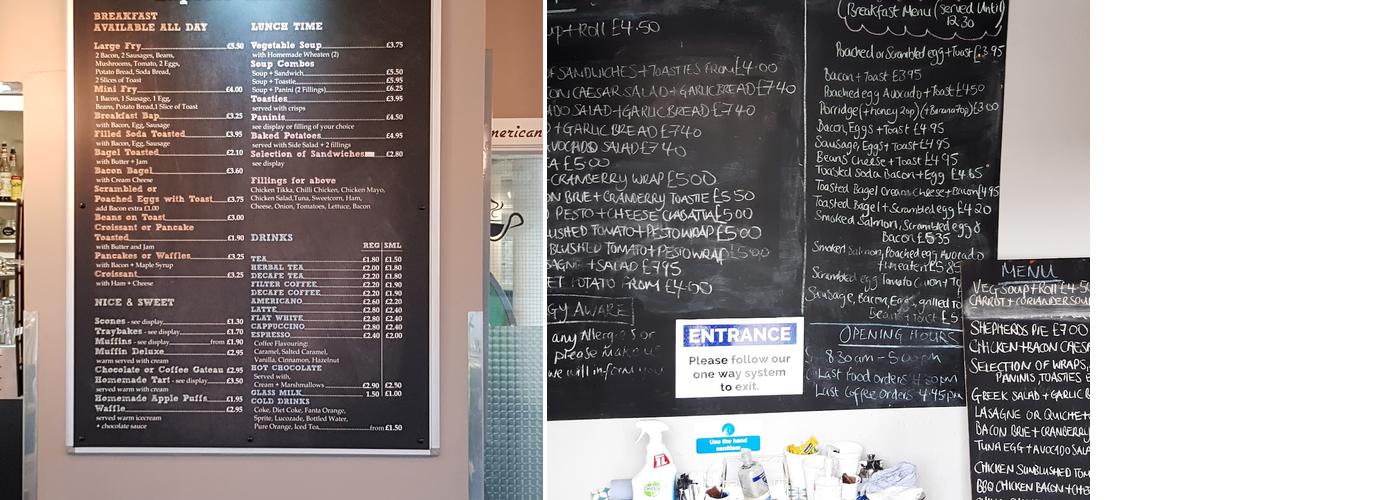 BREAKFAST
AVAILABLE ALL DAY
Large Fry £5.50
2 Bacon, 2 Sausages, Beans,
Mushrooms, Tomato, 2 Eggs,
Potato Bread, Soda Bread,
2 Slices of Toast
Mini Fry £4.00
1 Bacon, 1 Sausage, 1 Egg,
Beans, Potato Bread, 1 Slice of Toast
Breakfast Bap £3.25
with Bacon, Egg, Sausage
Filled Soda Toasted £3.95
with Bacon, Egg, Sausage
Bagel Toasted £2.10
with Butter + Jam
Bacon Bagel £3.60
with Cream Cheese
Scrambled or
Poached Eggs with Toast £3.75
add Bacon extra £1.00
Beans on Toast £3.00
Croissant or Pancake
Toasted £1.90
with Butter and Jam
Pancakes or Waffles £3.25
with Bacon + Maple Syrup
Croissant £3.25
with Ham + Cheese
NICE & SWEET
Scones - see display £1.30
Traybakes - see display £1.70
Muffins - see display from £1.90
Muffin Deluxe £2.95
warm served with cream
Chocolate or Coffee Gateau £2.95
Homemade Tart - see display £3.50
served warm with cream
Homemade Apple Puffs £1.95
Waffle £2.95
served warm icecream
+ chocolate sauce
LUNCH TIME
Vegetable Soup £3.75
with Homemade Wheaten (2)
Soup Combos
Soup + Sandwich £5.50
Soup + Toastie £5.95
Soup + Panini (2 Fillings) £6.25
Toasties £3.95
served with crisps
Paninis £4.50
see display or filling of your choice
Baked Potatoes £4.95
served with Side Salad + 2 fillings
Selection of Sandwiches £2.80
see display
Fillings for above
Chicken Tikka, Chilli Chicken, Chicken Mayo,
Chicken Salad, Tuna, Sweetcorn, Ham,
Cheese, Onion, Tomatoes, Lettuce, Bacon
DRINKS
REG SML
TEA £1.80 £1.50
HERBAL TEA £2.00 £1.80
DECAFE TEA £2.20 £1.80
FILTER COFFEE £2.20 £1.80
DECAFE COFFEE £2.20 £1.80
AMERICANO £2.60 £2.20
LATTE £2.80 £2.40
FLAT WHITE £2.80 £2.40
CAPPUCCINO £2.80 £2.40
ESPRESSO £2.40 £2.00
Coffee Flavouring:
Caramel, Salted Caramel,
Vanilla, Cinnamon, Hazelnut
HOT CHOCOLATE
Served with,
Cream + Marshmallows £2.90 £2.50
GLASS MILK 1.50 £1.00
COLD DRINKS
Coke, Diet Coke, Fanta Orange,
Sprite, Lucozade, Bottled Water,
Pure Orange, Iced Tea from £1.50
merican
up + Roll £4.50
OF SANDWICHES + TOASTIES FROM £4.00
CON CAESAR SALAD + GARLIC BREAD £7.40
ADO SALAD + GARLIC BREAD £7.40
D + GARLIC BREAD £7.40
AVOCADO SALAD £7.40
A £5.00
CRANBERRY WRAP £5.00
ON BRIE + CRANBERRY TOASTIE £5.50
PESTO + CHEESE CIABATTA £5.00
LUSHED TOMATO + PESTO WRAP £5.00
BLUSHED TOMATO + PESTO WRAP £5.00
SAGNE + SALAD £7.95
ET POTATO FROM £4.00
GY AWARE
any Allerg
please make us
we will inform you
ENTRANCE
Please follow our
one way system
to exit.
Breakfast Menu (served Until
12.30
Poached or Scrambled egg + Toast £3.95
Bacon + Toast £3.95
Poached egg Avocado + Toast £4.50
Porridge (+ honey 20p) (+ Banana 70p) £3.00
Bacon, Eggs + Toast £4.95
Sausage, Eggs + Toast £4.95
Beans Cheese + Toast £4.95
Toasted Soda Bacon + Egg £4.65
Toasted Bagel Cream Cheese + Bacon £4.95
Toasted Bagel + Scrambled egg £4.20
Smoked Salmon, Scrambled egg &
Bacon £5.35
Smoked Salmon, Poached egg Avocado
+ wheaten £5.85
Scrambled egg Tomato
Sausage, Bacon, Egg, grilled to
Beans + Toast £5
OPENING HOURS
8.30am - 5.00pm
Last food orders 4.30pm
Last Coffee orders 4.45pm
Use the hand
sanitiser
Dettol
MENU
VEG SOUP + ROLL £4.50
CARROT + CORIANDER SOUP
SHEPHERDS PIE £7.00
CHICKEN + BACON CAESA
SELECTION OF WRAPS,
PANINIS, TOASTIES
GREEK SALAD + GARLIC B
LASAGNE OR QUICHE +
BACON BRIE + CRANBERRY
TUNA EGG + AVOCADO SALA
CHICKEN SUNBLUSHED TOM
BBQ CHICKEN BACON + CHE